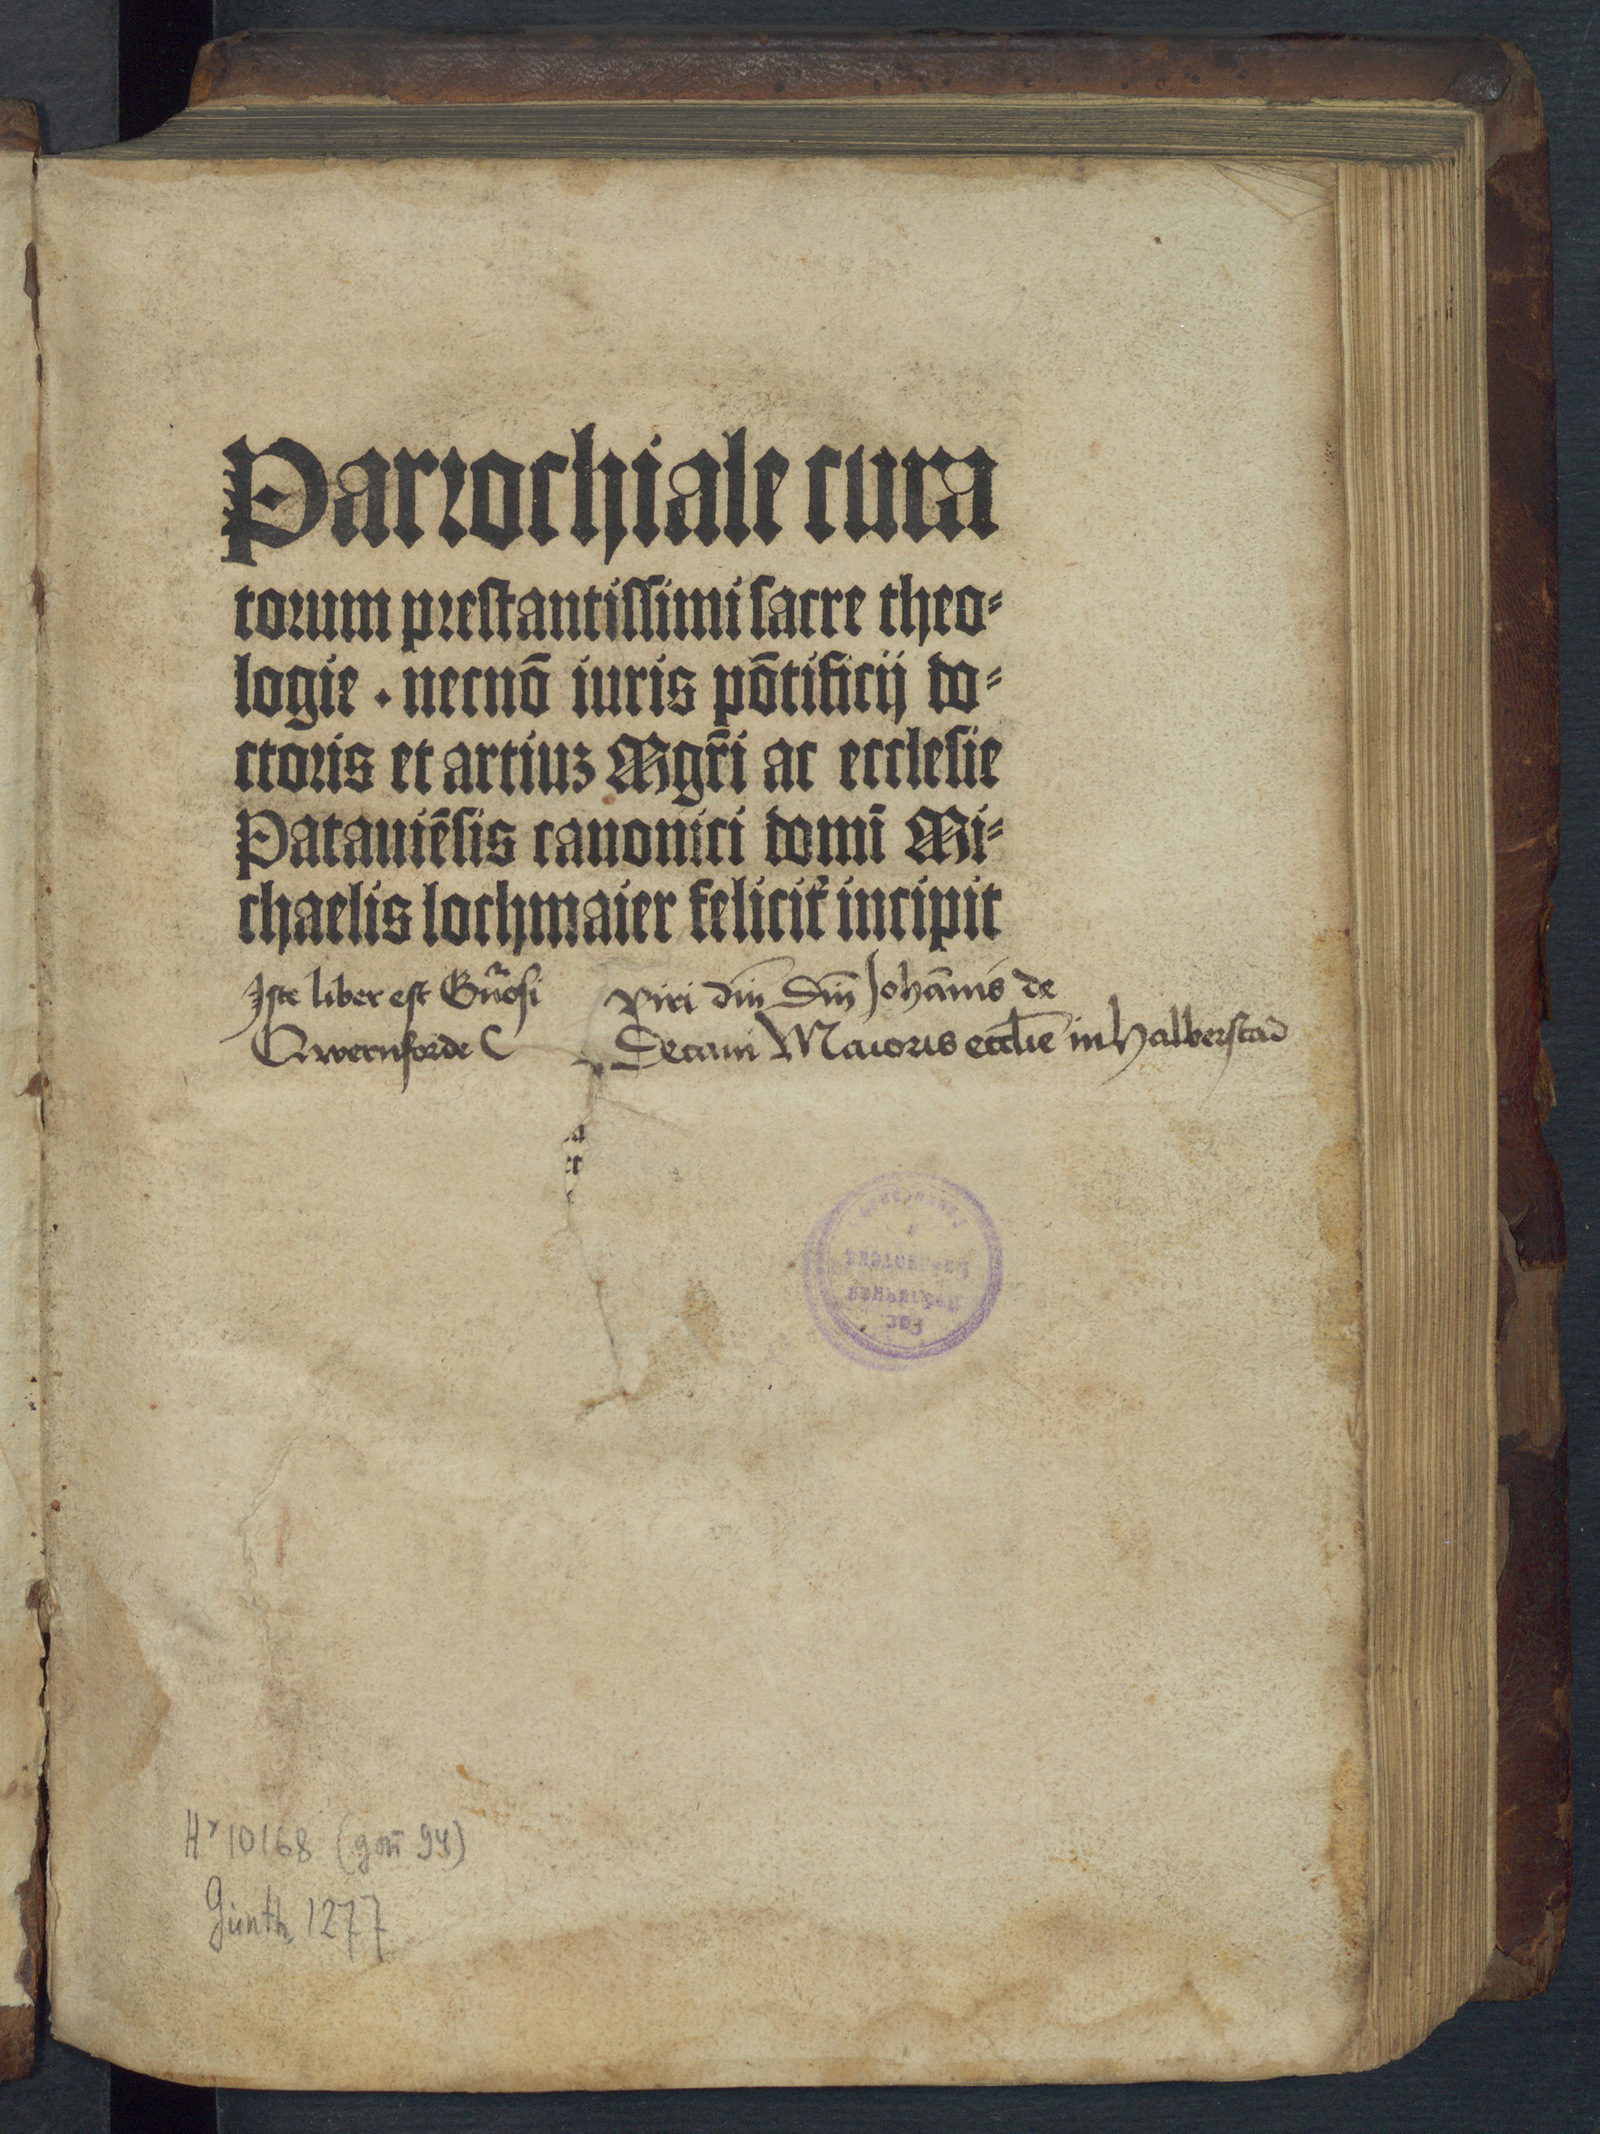 Parrochiale cura
torum prestantissimi sacre theo⸗
logie . necnō iuris pōtificij do⸗
ctoris et artiuz Mgr̄i ac ecclesie
Patauiēsis canonici domī Mi⸗
chaelis lochmaier felicit᷑ incipit
Iste liber est Gn̄osi viri dm̄ Dm̄ Johānis de
Qwernforde Decani Maioris eccl̄ie in halberstad
H* 10168 (goṅ 94)
Günth 1277